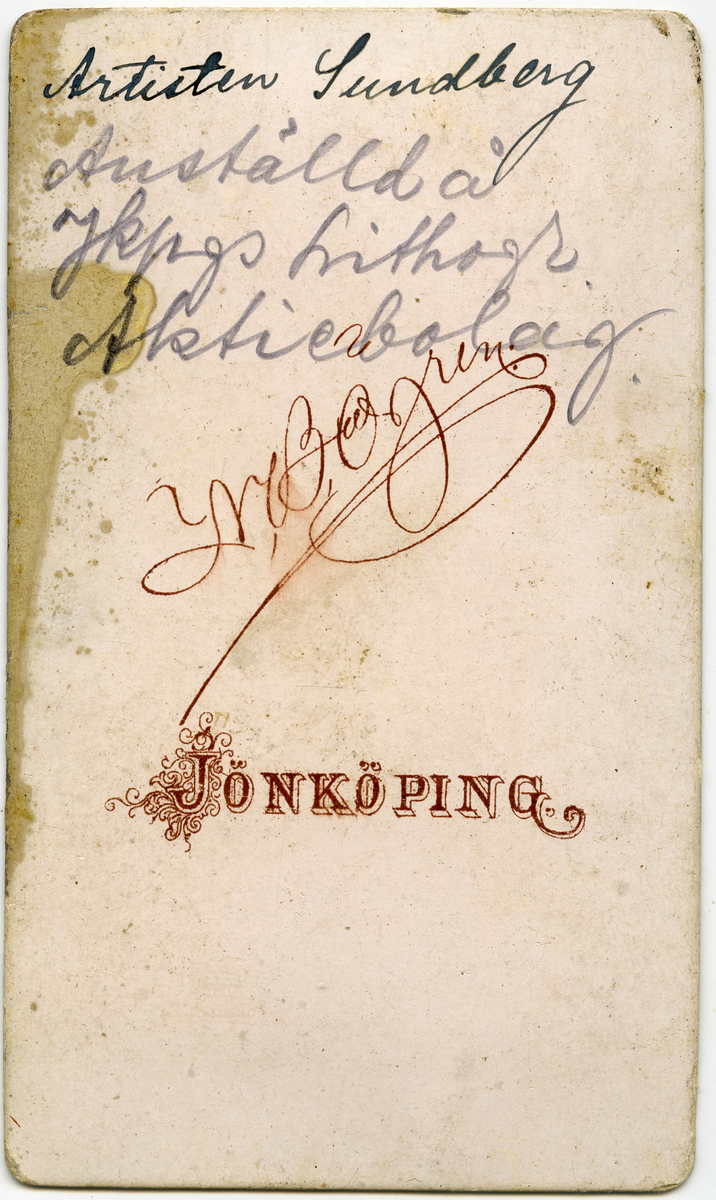 Artisten Sundberg
Anställd å
Jkpgs Lithogr.
Aktiebolag.
JÖNKÖPING.